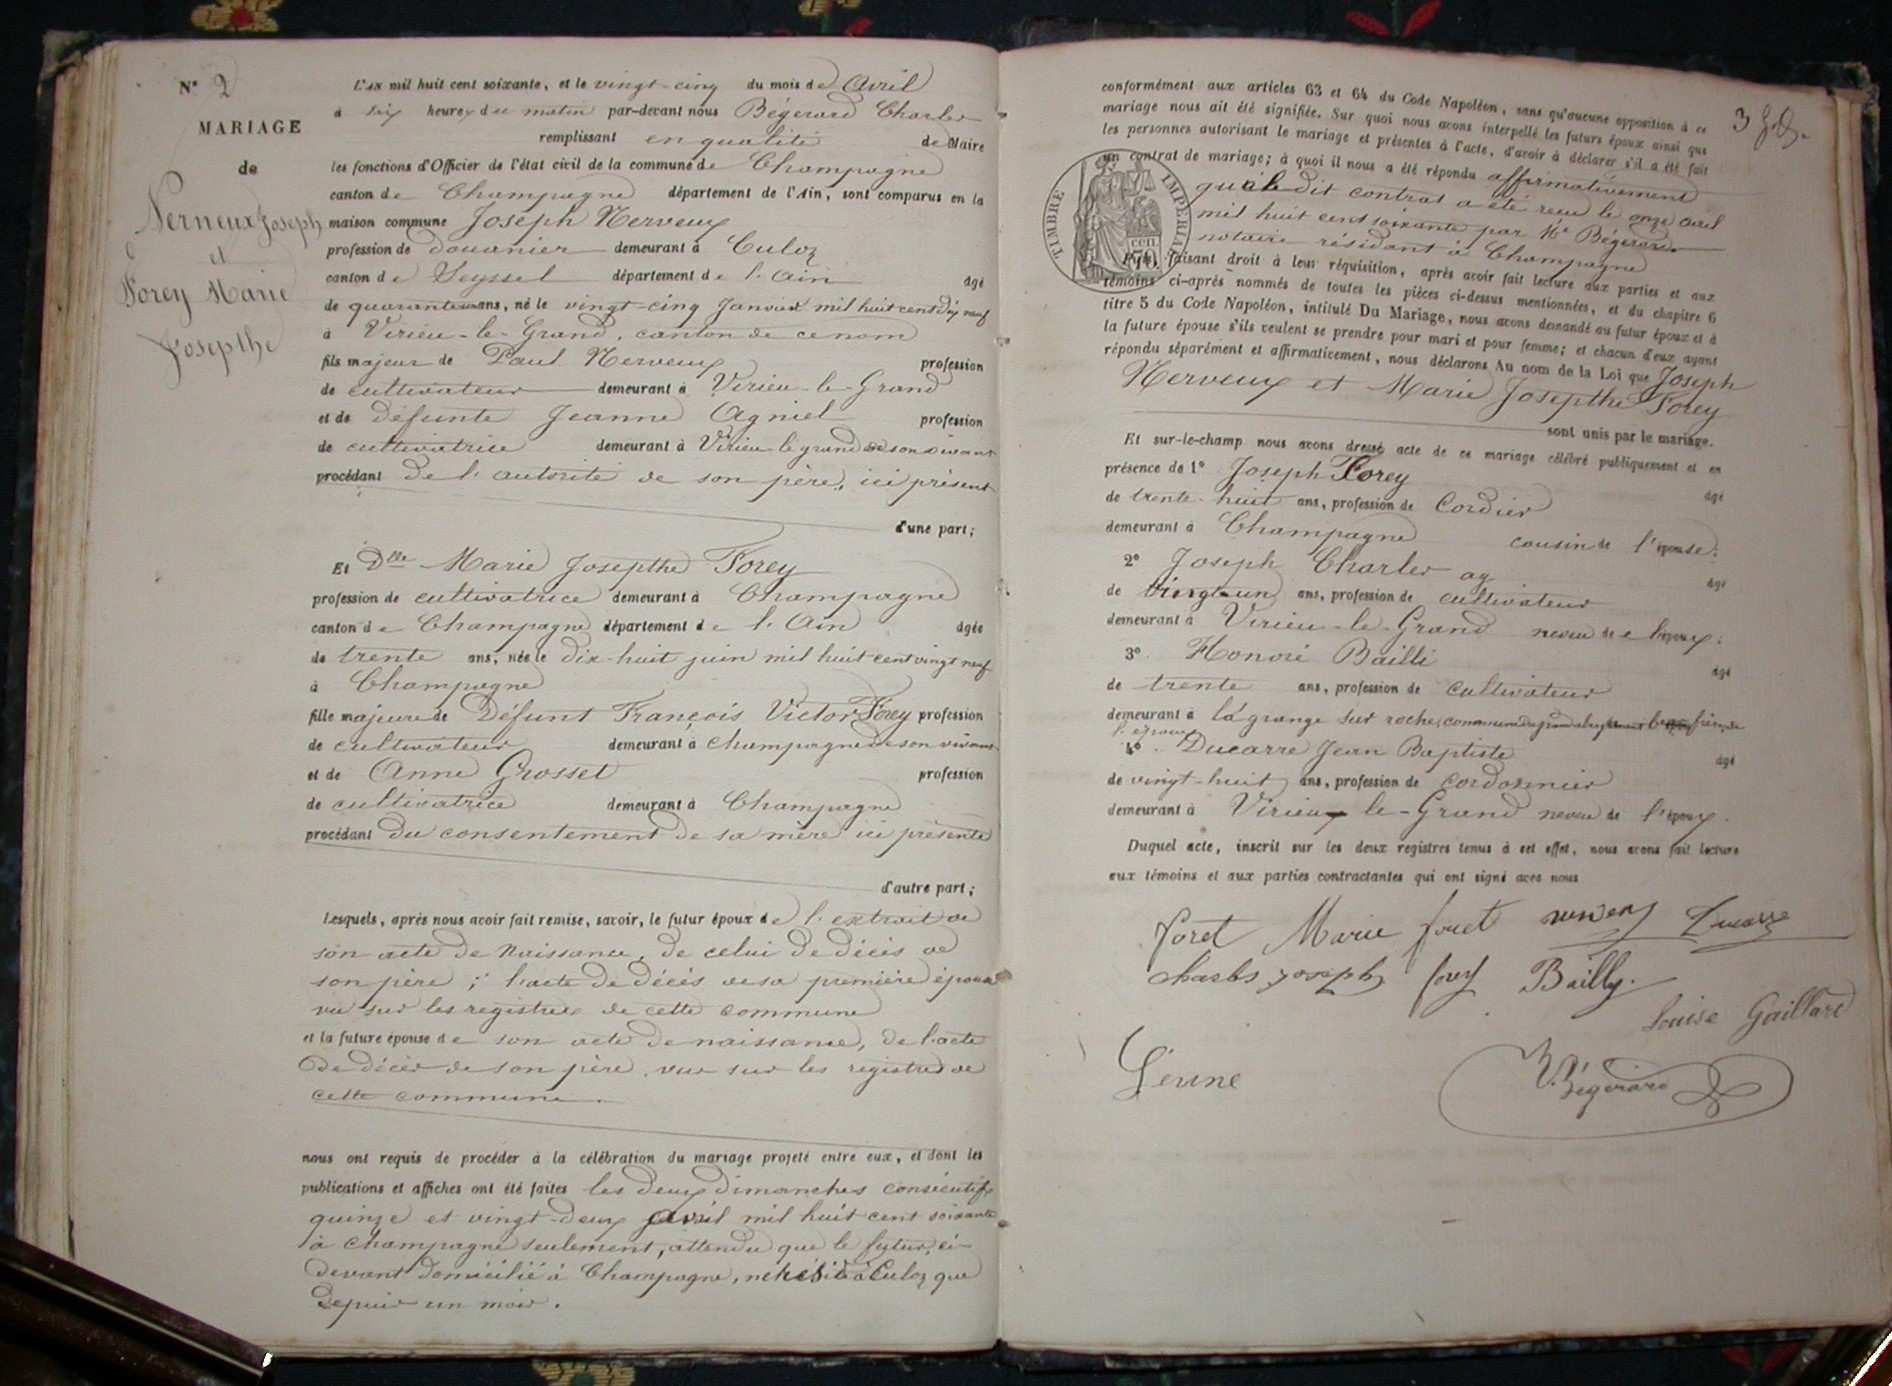 N° 2
MARIAGE
de
Nerveux Joseph
et
Forey Marie
Josepthe
L'AN mil huit cent soixante, et le vingt-cinq du mois de Avril
à dix heures du matin par-devant nous Bégerard Charles
remplissant en qualité de Maire
les fonctions d'Officier de l'état civil de la commune de Champagne
canton de Champagne département de l'Ain, sont comparus en la
maison commune Joseph Nerveux
profession de douanier demeurant à Culoz
canton de Seyssel département de l'Ain âgé
de quarante un ans, né le vingt-cinq Janvier mil huit cent dix neuf
à Virieu-le-Grand, canton de ce nom
fils majeur de Paul Nerveux profession
de cultivateur demeurant à Virieu-le-Grand
et de défunte Jeanne Agniel profession
de cultivatrice demeurant à Virieu le grand de son vivant
procédant De l'autorité de son père, ici présent
d'une part;
Et Dlle Marie Josepthe Forey
profession de cultivatrice demeurant à Champagne
canton de Champagne département de l'Ain âgée
de trente ans, née le dix-huit juin mil huit cent vingt neuf
à Champagne
fille majeure de Défunt François Victor Forey profession
de cultivateur demeurant à Champagne de son vivant
et de Anne Grosset profession
de cultivatrice demeurant à Champagne
procédant du consentement de sa mère ici présente
d'autre part;
Lesquels, après nous avoir fait remise, savoir, le futur époux de l'extrait de
son acte de Naissance, de celui de décès de
son père ; l'acte de décès de sa première épouse
vu sur les registres de cette commune
et la future épouse de son acte de naissance, de l'acte
de décès de son père, vus sur les registres de
cette commune.
nous ont requis de procéder à la célébration du mariage projeté entre eux, et dont les
publications et affiches ont été faites les deux dimanches consécutifs
quinze et vingt-deux avril mil huit cent soixante
à Champagne seulement, attendu que le futur, ci-
devant domicilié à Champagne, ne réside à Culoz que
depuis un mois.
3
conformément aux articles 63 et 64 du Code Napoléon, sans qu'aucune opposition à ce
mariage nous ait été signifiée. Sur quoi nous avons interpellé les futurs époux ainsi que
les personnes autorisant le mariage et présentes à l'acte, d'avoir à déclarer s'il a été fait
un contrat de mariage; à quoi il nous a été répondu affirmativement
qu'à le dit contrat a été reçu le onze avril
mil huit cent soixante par Me Bégerard
notaire résidant à Champagne
TIMBRE IMPERIAL
faisant droit à leur réquisition, après avoir fait lecture aux parties et aux
témoins ci-après nommés de toutes les pièces ci-dessus mentionnées, et du chapitre 6
titre 5 du Code Napoléon, intitulé Du Mariage, nous avons demandé au futur époux et à
la future épouse s'ils veulent se prendre pour mari et pour femme; et chacun d'eux ayant
répondu séparément et affirmativement, nous déclarons Au nom de la Loi que Joseph
Nerveux et Marie Josepthe Forey
sont unis par le mariage.
Et sur-le-champ nous avons dressé acte de ce mariage célébré publiquement et en
présence de 1° Joseph Forey âgé
de trente-huit ans, profession de Cordier
demeurant à Champagne cousin de l'épouse;
2° Joseph Charles âgé
de vingt-un ans, profession de cultivateur
demeurant à Virieu-le-Grand neveu de l'époux;
3° Honoré Bailli âgé
de trente ans, profession de Cultivateur
demeurant à lagrange sur roche, commune du grand abergement frère de
l'époux
4° Ducarre Jean Baptiste âgé
de vingt-huit ans, profession de Cordonnier
demeurant à Virieu le-Grand neveu de l'époux.
Duquel acte, inscrit sur les deux registres tenus à cet effet, nous avons fait lecture
aux témoins et aux parties contractantes qui ont signé avec nous
Foret Marie foret Ducarre
charles joseph forey Bailly.
Louise Gaillard
Bégerard